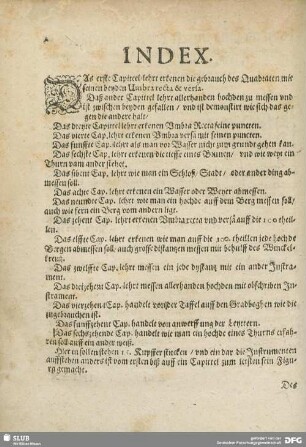 INDEX.
DAs erste Capittel lehrt erkenen die gebrauch des Quadraten mit
seinen beyden Umbra recta & versa.
Daß ander Capittel lehrt allerhanden hochden zu messen und
ist zwischen beyden gefallen / und ist demonstirt wie sich das ge-
gen die andere halt/
Das dreyte Capittel lehrt erkenen Vmbra Recta seine puncten.
Das vierte Cap. lehrt erkenen Vmbra versa mit seinen puncten.
Das funffte Cap. lehrt als man vor Wasser nicht zum grunde gehen kan.
Das sechste Cap. lehrt erkenen die tieffe eines Bonnen/ und wie weyt ein
Thurn vom ander stehet.
Das sibent Cap. lehrt wie man ein Schloß/ Stadt/ oder ander ding ab-
messen soll.
Das achte Cap. lehrt erkenen ein Wasser oder Weyer abmessen.
Das neundte Cap. lehrt wie man ein hochde auff dem Berg messen soll/
auch wie fern ein Berg vom andern lige.
Das zehent Cap. lehrt erkenen Umbra recta und versa auff die 100 theil-
len.
Das elffte Cap. lehrt erkenen wie man auff die 100. theillen jede hochde
Bergen abmessen soll/ auch grosse distantzen messen mit behülff des Winckel-
kreutz.
Das zwelffte Cap. lehrt messen ein jede dystantz mit ein ander Instru-
ment.
Das dreizehent Cap. lehrt messen allerhanden hochden mit obschriben In-
strament.
Das vierzehent Cap. handelt von der Taffel auff den Gradboghen wie die
zugebrauchen ist.
Das funffzehent Cap. handelt von anwerffung der Leyttern.
Das sechszehende Cap. handelt wie man ein hochde eines Thurns erfah-
ren soll auff ein ander weiß.
Hier in sollen stehen 11. Kupffer stucken / und ein dar die Instrumenten
auffstehen anders ist vom ersten biß auff ein Capittel zum letsten sein Figu-
ren gemacht.
Des
SLUB
DFG